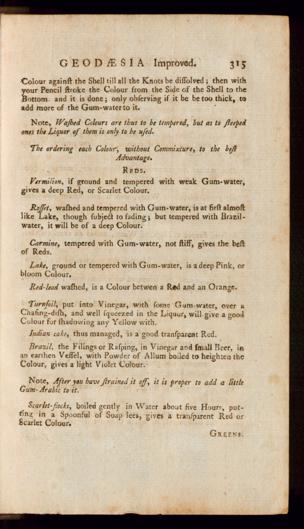 GEODÆSIA Improved. 315
Colour againſt the Shell till all the Knots be diſſolved; then with
your Pencil ſtroke the Colour from the Side of the Shell to the
Bottom and it is done; only obſerving if it be too thick, to
add more of the Gum-water to it.
Note, Waſhed Colours are thus to be tempered, but as to ſteeped
ones the Liquor of them is only to be uſed.
The ordering each Colour, without Commixture, to the beſt
Advantage.
REDS.
Vermilion, if ground and tempered with weak Gum-water,
gives a deep Red, or Scarlet Colour.
Roſſet, waſhed and tempered with Gum-water, is at firſt almoſt
like Lake, though ſubject to fading; but tempered with Brazil-
water, it will be of a deep Colour.
Carmine, tempered with Gum-water, not ſtiff, gives the beſt
of Reds.
Lake, ground or tempered with Gum-water, is a deep Pink, or
bloom Colour.
Red-lead waſhed, is a Colour between a Red and an Orange.
Turnſoil, put into Vinegar, with ſome Gum-water, over a
Chafing-diſh, and well ſqueezed in the Liquor, will give a good
Colour for ſhadowing any Yellow with.
Indian cake, thus managed, is a good tranſparent Red.
Brazil, the Filings or Raſping, in Vinegar and ſmall Beer, in
an earthen Veſſel, with Powder of Allum boiled to heighten the
Colour, gives a light Violet Colour.
Note, After you have ſtrained it off, it is proper to add a little
Gum-Arabic to it.
Scarlet-flocks, boiled gently in Water about five Hours, put-
ting in a Spoonful of Soap lees, gives a tranſparent Red or
Scarlet Colour.
GREENS.